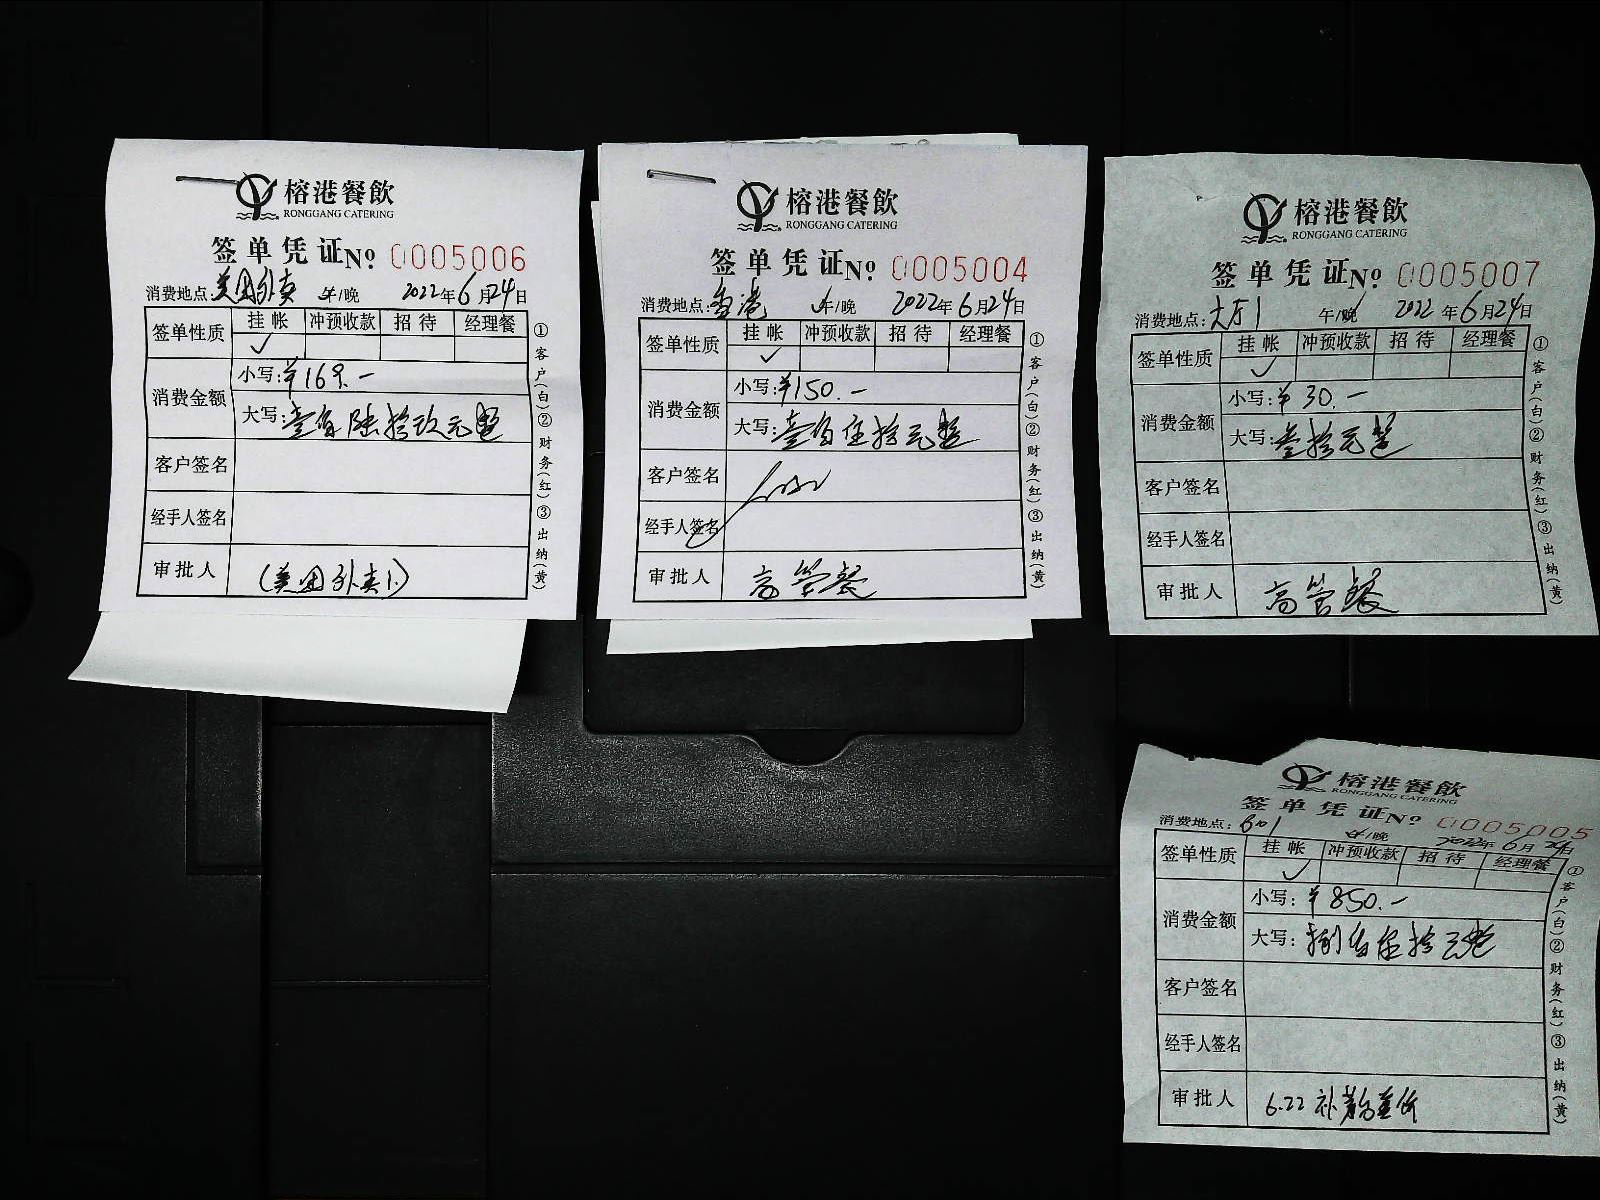 榕港餐飲
RONGGANG CATERING
签单凭证 № 0005006
消费地点:美团外卖 午/晚 2022年6月24日
签单性质 挂帐 冲预收款 招待 经理餐
✓
消费金额
小写:¥169.—
大写:壹佰陆拾玖元整
客户签名
经手人签名
审批人 (美团外卖1)
①客户(白)②财务(红)③出纳(黄)
榕港餐飲
RONGGANG CATERING
签单凭证 № 0005004
消费地点:香港 午/晚 2022年6月24日
签单性质 挂帐 冲预收款 招待 经理餐
✓
消费金额
小写:¥150.—
大写:壹佰伍拾元整
客户签名
经手人签名
审批人 高管餐
①客户(白)②财务(红)③出纳(黄)
榕港餐飲
RONGGANG CATERING
签单凭证 № 0005007
消费地点:大厅1 午/晚 2022年6月24日
签单性质 挂帐 冲预收款 招待 经理餐
✓
消费金额
小写:¥30.—
大写:叁拾元整
客户签名
经手人签名
审批人 高管餐
①客户(白)②财务(红)③出纳(黄)
榕港餐飲
RONGGANG CATERING
签单凭证 № 0005005
消费地点: 午/晚 2022年6月24日
签单性质 挂帐 冲预收款 招待 经理餐
✓
消费金额
小写:¥850.—
大写:捌佰伍拾元整
客户签名
经手人签名
审批人 6.22 补
①客户(白)②财务(红)③出纳(黄)